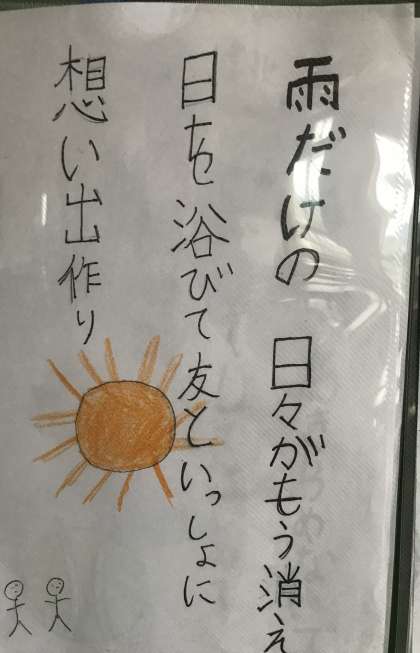 雨だけの 日々がもう消え
日を浴びて友といっしょに
想い出作り